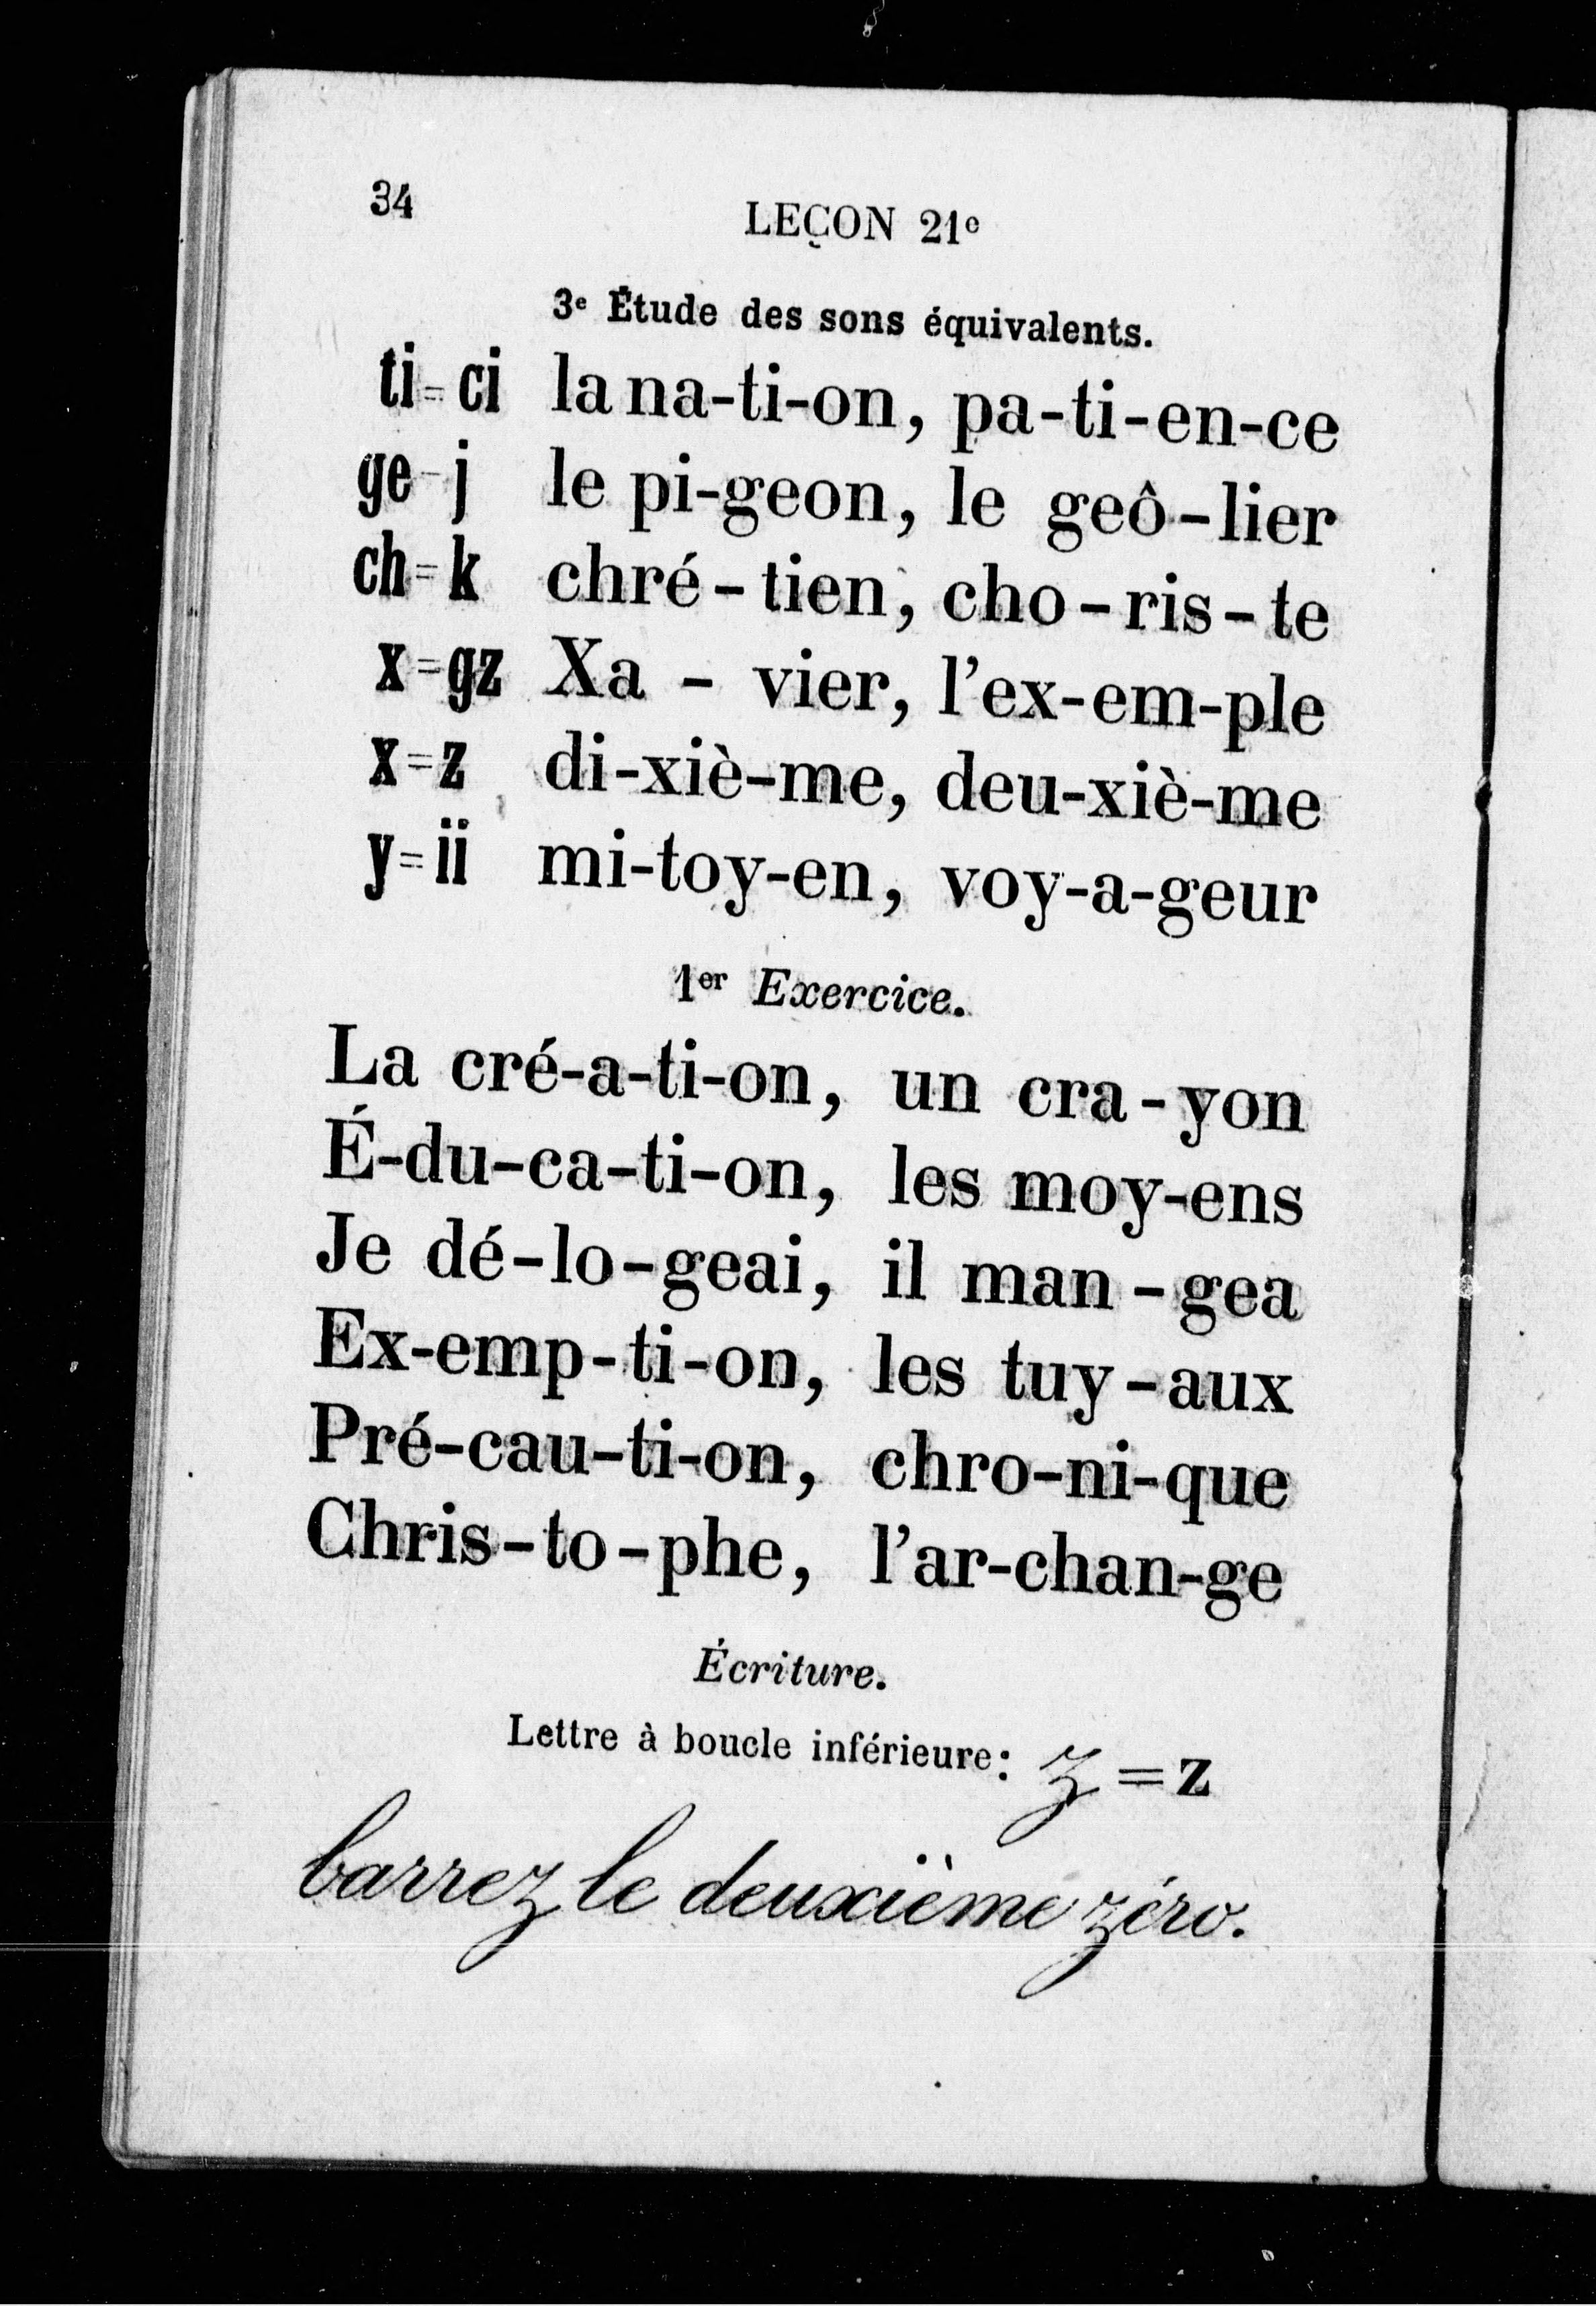 34
LEÇON 21e
3e Étude des sons équivalents.
ti=ci la na-ti-on, pa-ti-en-ce
ge=j le pi-geon, le geô-lier
ch=k chré-tien, cho-ris-te
x=gz Xa-vier, l'ex-em-ple
x=z di-xiè-me, deu-xiè-me
y=ii mi-toy-en, voy-a-geur
1er Exercice.
La cré-a-ti-on, un cra-yon
É-du-ca-ti-on, les moy-ens
Je dé-lo-geai, il man-gea
Ex-emp-ti-on, les tuy-aux
Pré-cau-ti-on, chro-ni-que
Chris-to-phe, l'ar-chan-ge
Écriture.
Lettre à boucle inférieure: z=z
barrez le deuxième zéro.